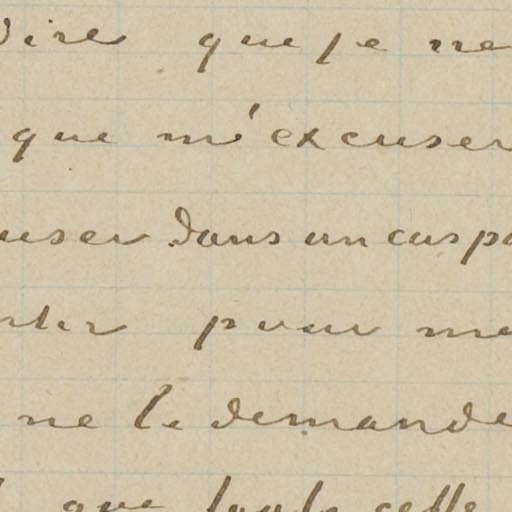 dire que je ne
que m'excuser
user dans un cas pa
ter pour me
ne le demande
que toute cette